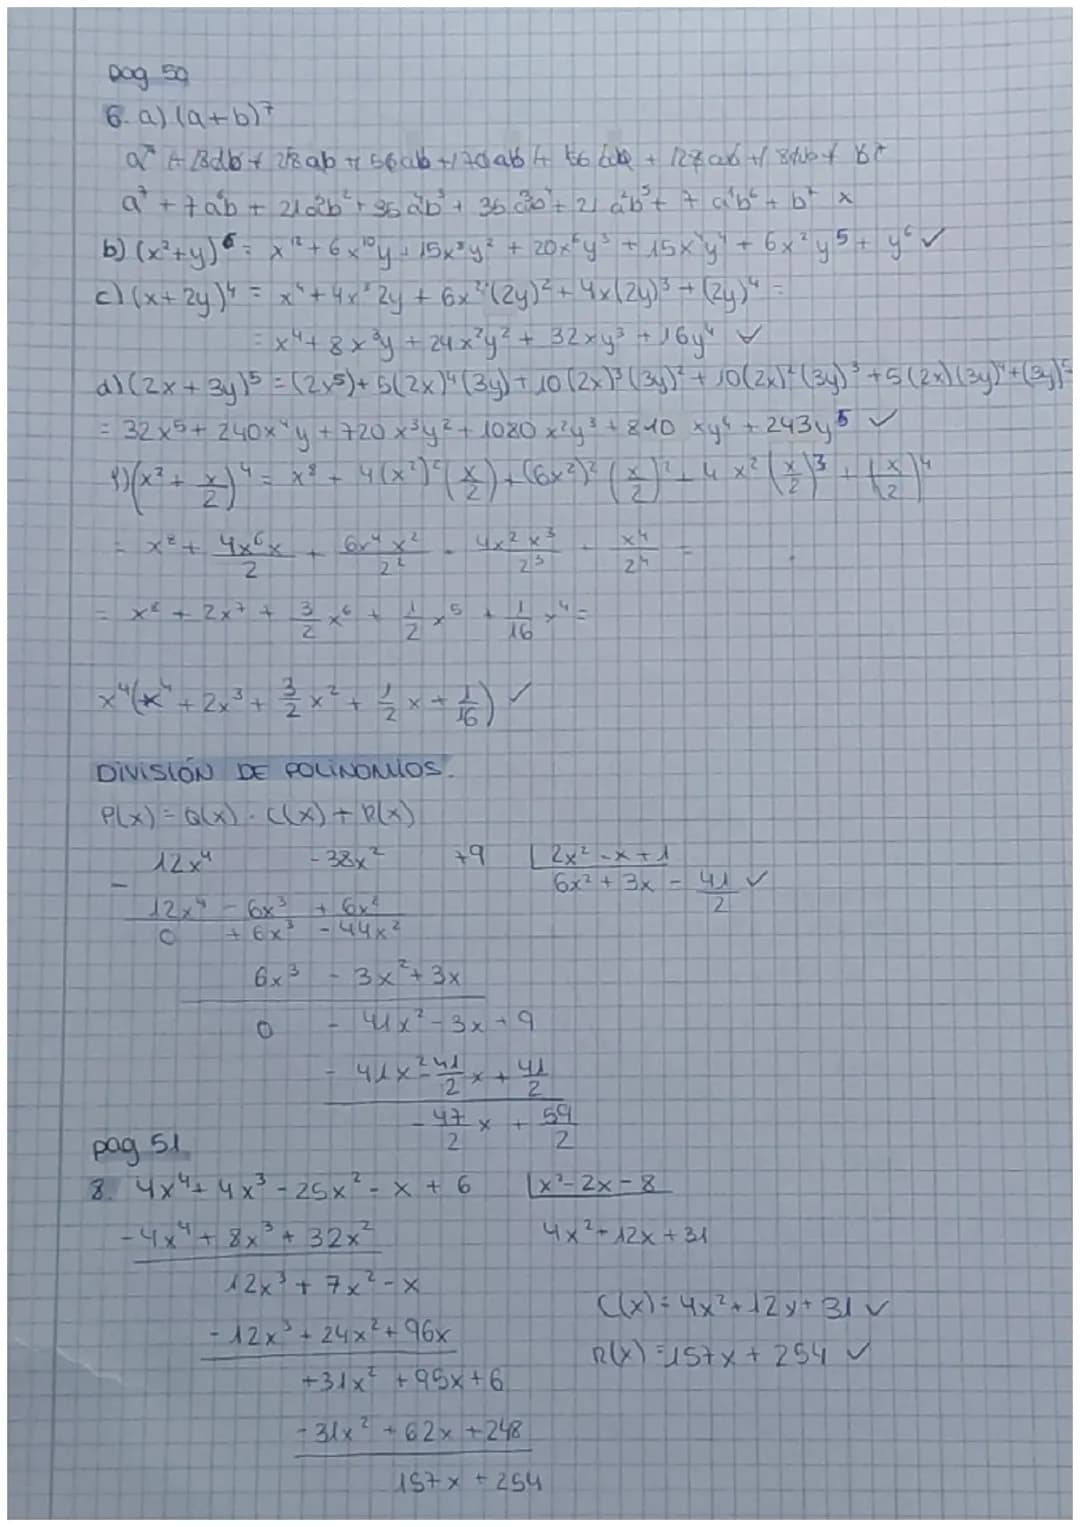 Pag 50
6. a) (a+b)⁷
a⁷ + 7a⁶b + 21a⁵b² + 35a⁴b³ + 35a³b⁴ + 21a²b⁵ + 7a¹b⁶ + b⁷ x
b) (x²+y)⁶ = x¹² + 6x¹⁰y + 15x⁸y² + 20x⁶y³ + 15x⁴y⁴ + 6x²y⁵ + y⁶ ✓
c) (x+2y)⁴ = x⁴ + 4x³2y + 6x²(2y)² + 4x(2y)³ + (2y)⁴ =
= x⁴ + 8x³y + 24x²y² + 32xy³ + 16y⁴ ✓
d) (2x+3y)⁵ = (2x⁵) + 5(2x)⁴(3y) + 10(2x)³(3y)² + 10(2x)²(3y)³ + 5(2x)(3y)⁴ + (3y)⁵
= 32x⁵ + 240x⁴y + 720x³y² + 1080x²y³ + 810xy⁴ + 243y⁵ ✓
f) (x² + x/2)⁴ = x⁸ + 4(x²)²(x/2) + (6x²)²(x/2)² + 4x²(x/2)³ + (x/2)⁴
= x⁸ + 4x⁶x/2 + 6x⁴x²/2² + 4x²x³/2³ + x⁴/2⁴ =
= x⁸ + 2x⁷ + 3/2 x⁶ + 1/2 x⁵ + 1/16 x⁴ =
x⁴(x⁴ + 2x³ + 3/2 x² + 1/2 x + 1/16) ✓
DIVISIÓN DE POLINOMIOS.
P(x) = Q(x) · C(x) + R(x)
12x⁴ - 38x² + 9 | 2x² - x + 1
6x² + 3x - 41/2 ✓
- 12x⁴ - 6x³ + 6x²
0 + 6x³ - 44x²
6x³ - 3x² + 3x
0 - 41x² - 3x + 9
- 41x² - 41/2 x + 41/2
- 47/2 x + 59/2
pag 51
8. 4x⁴ + 4x³ - 25x² - x + 6 | x² - 2x - 8
-4x⁴ + 8x³ + 32x² 4x² + 12x + 31
12x³ + 7x² - x
C(x) = 4x² + 12x + 31 ✓
-12x³ + 24x² + 96x
R(x) = 157x + 254 ✓
+31x² + 95x + 6
-31x² + 62x + 248
157x + 254